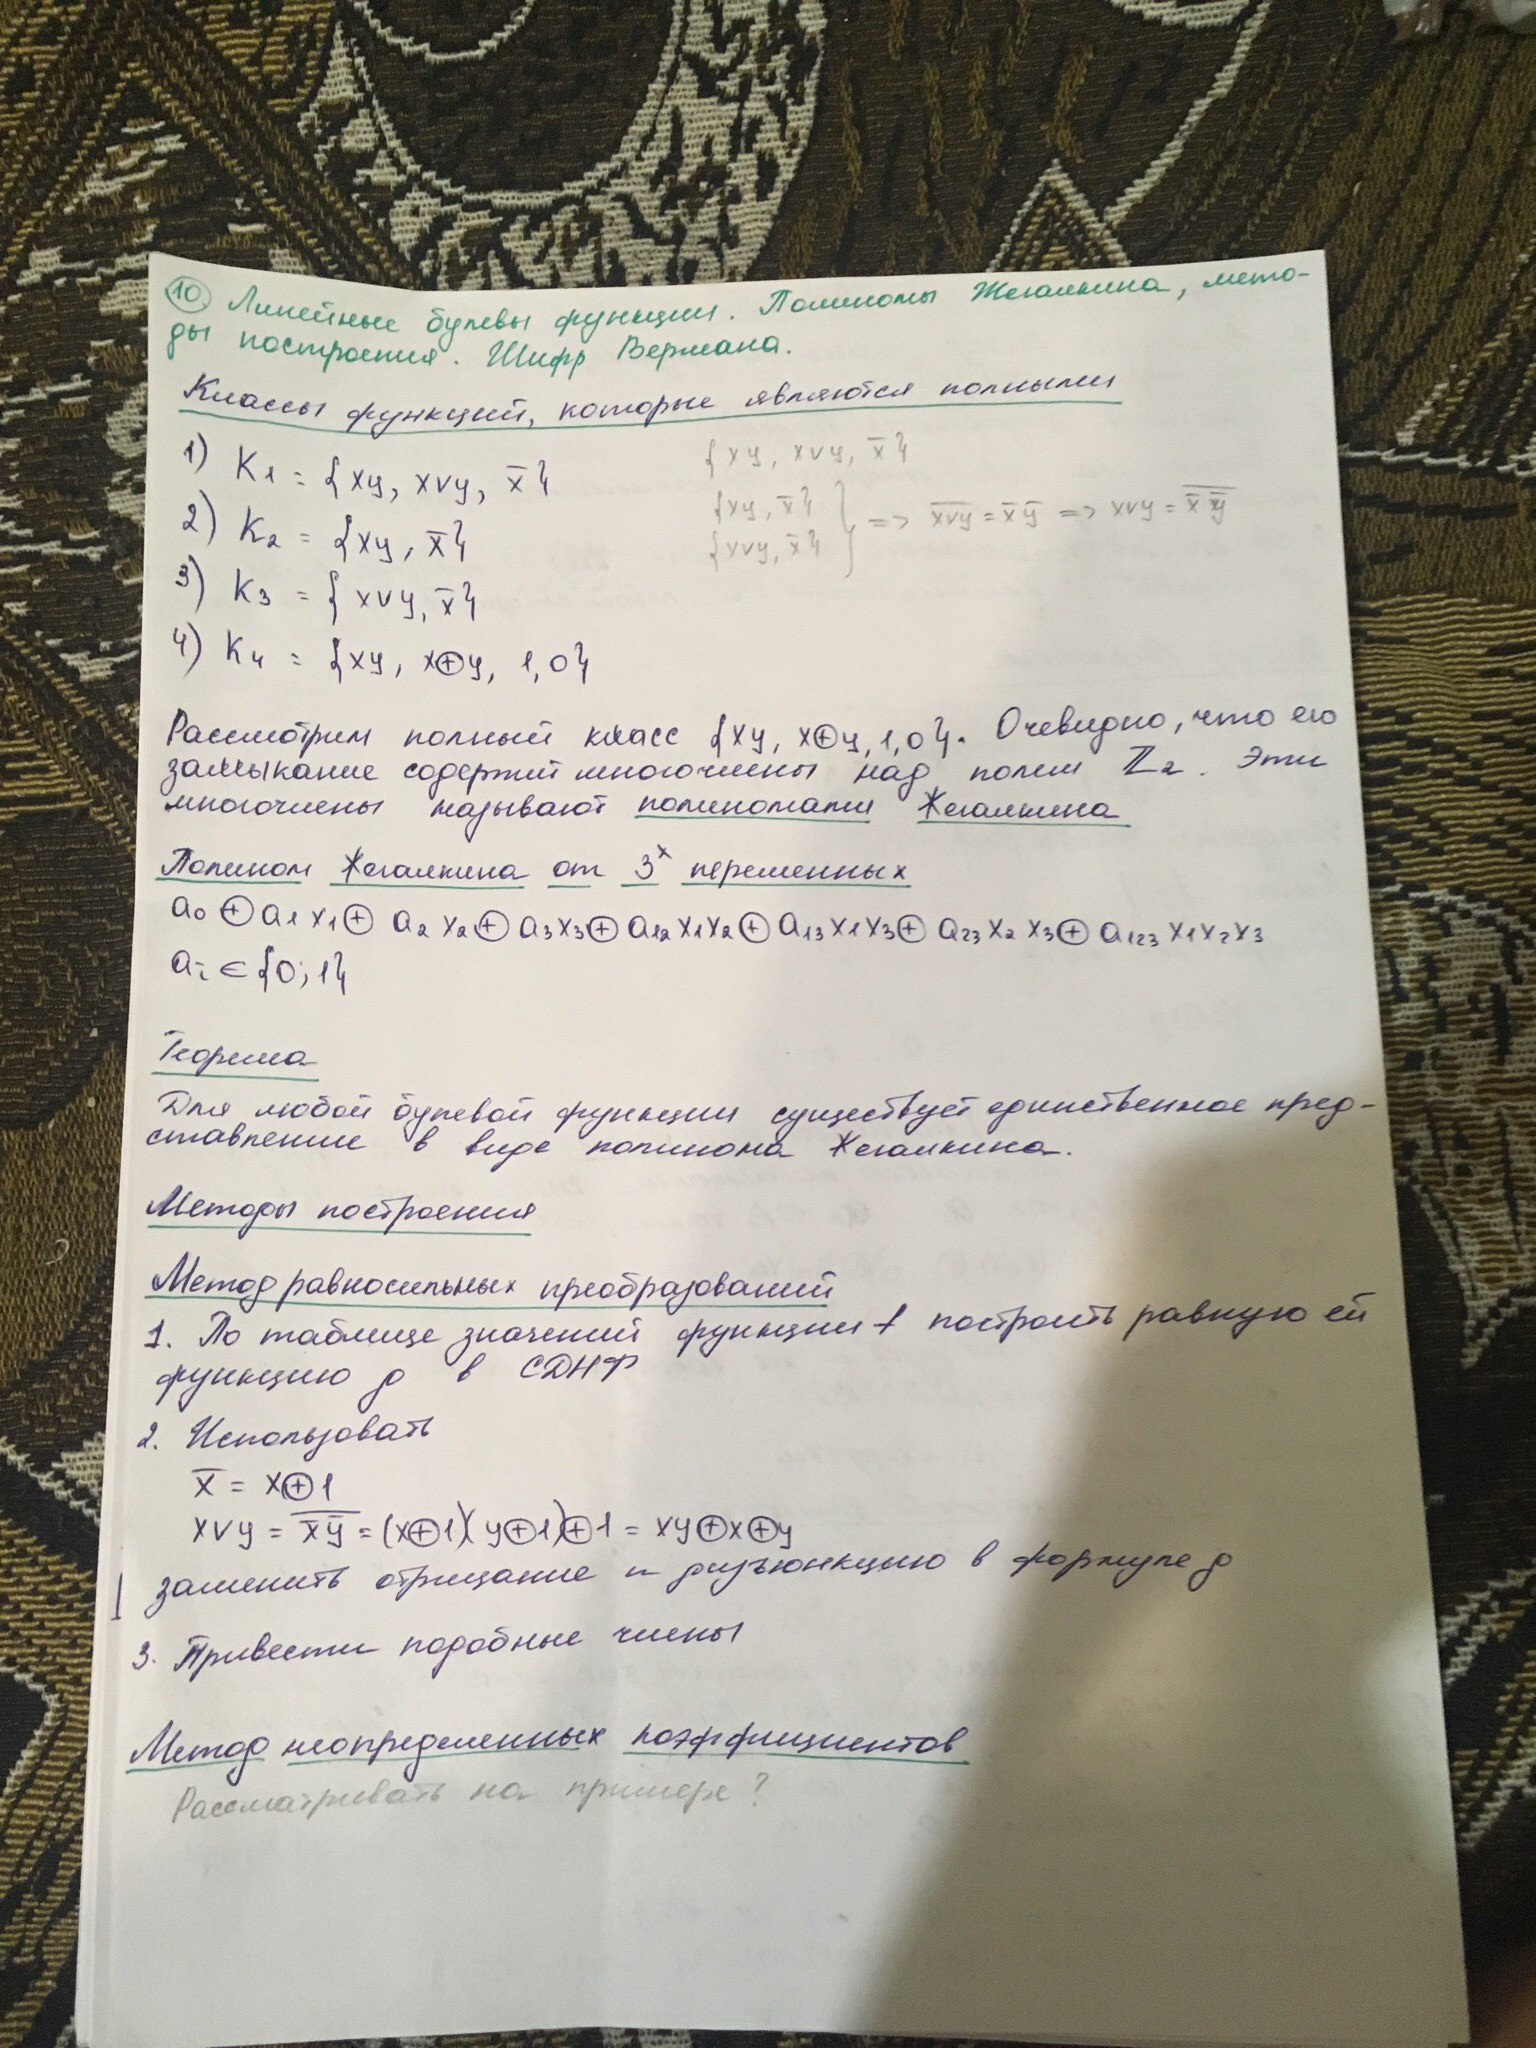 10. Линейные булевы функции. Полиномы Жегалкина, мето-
ды построения. Шифр Вернама.
Классы функций, которые являются полными
1) K₁ = {xy, x∨y, x̅}
2) K₂ = {xy, x̅}
3) K₃ = {x∨y, x̅}
4) K₄ = {xy, x⊕y, 1, 0}
{xy, x∨y, x̅}
{xy, x̅}
{x∨y, x̅} } => \overline{x∨y} = x̅ y̅ => x∨y = \overline{x̅ y̅}
Рассмотрим полный класс {xy, x⊕y, 1, 0}. Очевидно, что его
замыкание содержит многочлены над полем ℤ₂. Эти
многочлены называют полиномами Жегалкина
Полином Жегалкина от 3ˣ переменных
a₀ ⊕ a₁x₁ ⊕ a₂x₂ ⊕ a₃x₃ ⊕ a₁₂x₁x₂ ⊕ a₁₃x₁x₃ ⊕ a₂₃x₂x₃ ⊕ a₁₂₃x₁x₂x₃
aᵢ ∈ {0; 1}
Теорема
Для любой булевой функции существует единственное пред-
ставление в виде полинома Жегалкина.
Методы построения
Метод равносильных преобразований
1. По таблице значений функции f построить равную ей
функцию g в СДНФ
2. Использовать
x̅ = x⊕1
x∨y = \overline{x̅ y̅} = (x⊕1)(y⊕1)⊕1 = xy⊕x⊕y
заменить отрицание и дизъюнкцию в формуле g
3. Привести подобные члены
Метод неопределенных коэффициентов
Рассматривать на примере?